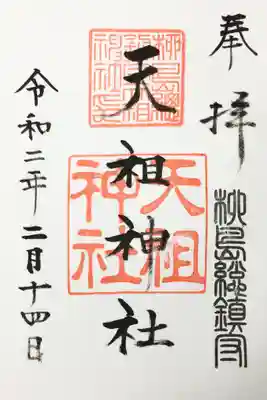 奉拝
柳島総鎮守
天祖神社
天祖神社
令和二年二月十四日